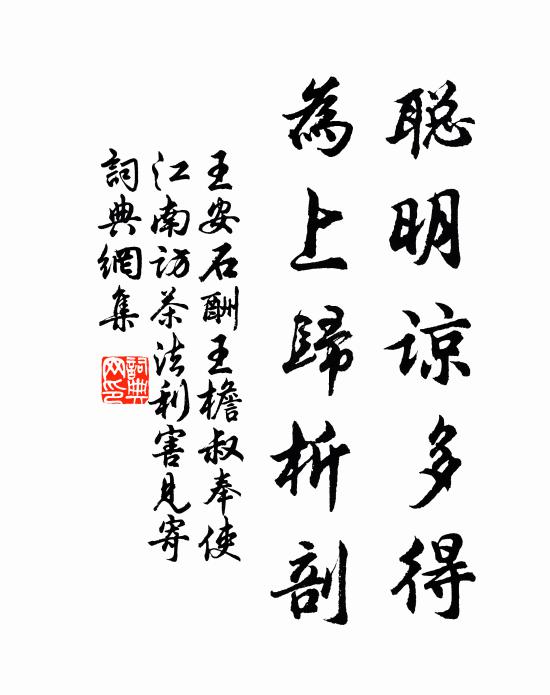 聪明谅多得
為上歸析剖
王安石酬王檐叔奉使
江南訪茶法利害見寄
詞典網集
詞典
网印